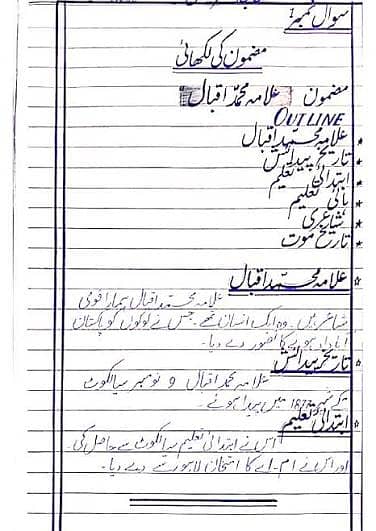 سوال نمبر 1
مضمون کی لکھائی
مضمون علامہ محمد اقبال
OUTLINE
* علامہ محمد اقبال
* تاریخ پیدائش
* ابتدائی تعلیم
* باقی تعلیم
* شاعری
* تاریخ موت
* علامہ محمد اقبال
علامہ محمد اقبال ہمارا قومی
شاعر ہیں۔ وہ ایک انسان تھے۔ جس نے لوگوں کو پاکستان
آباد ہونے کا تصور دے دیا۔
تاریخ پیدائش
علامہ محمد اقبال 9 نومبر سیالکوٹ
کے شہر 1877 میں پیدا ہوئے۔
* ابتدائی تعلیم
اس نے ابتدائی تعلیم سیالکوٹ سے حاصل کی۔
اور اس نے ایم۔اے کا امتحان لاہور سے دے دیا۔